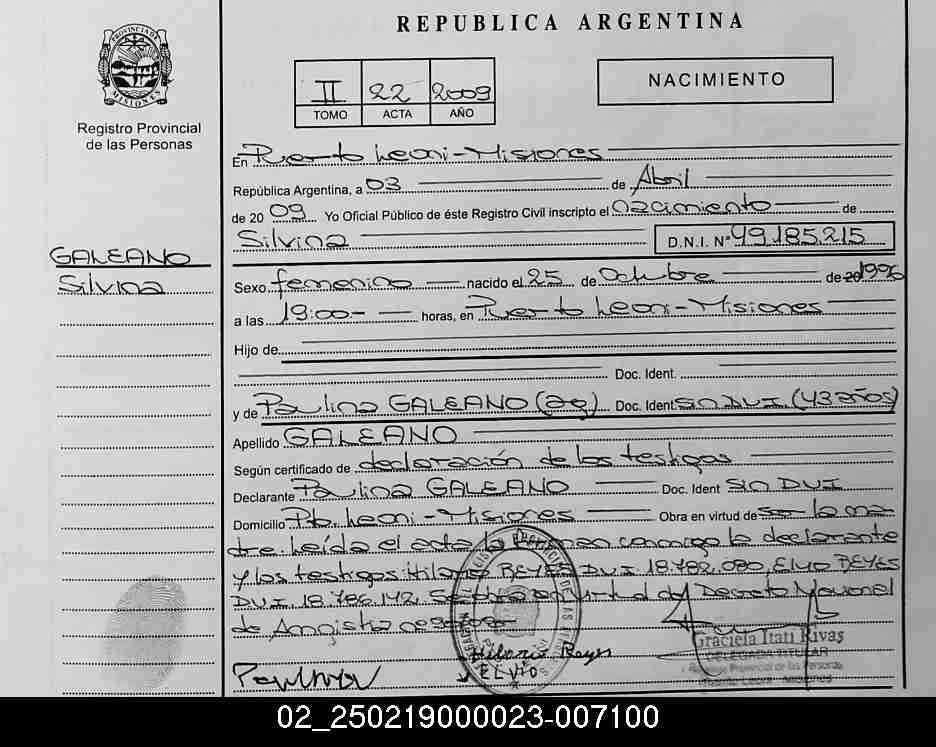 REPUBLICA ARGENTINA
PROVINCIA DE MISIONES
Registro Provincial
de las Personas
II 22 2009
TOMO ACTA AÑO
NACIMIENTO
En Puerto Leoni-Misiones
República Argentina, a 03 de Abril
de 2009 Yo Oficial Público de éste Registro Civil inscripto el nacimiento de
Silvina D.N.I. Nº 49.185.215
GALEANO
Silvina
Sexo femenino nacido el 25 de Octubre de 20 1996
a las 19:00 horas, en Puerto Leoni-Misiones
Hijo de
Doc. Ident.
y de Paulina GALEANO (ag) Doc. Ident sin DUI (43 años)
Apellido GALEANO
Según certificado de declaración de los testigos
Declarante Paulina GALEANO Doc. Ident sin DUI
Domicilio Pto. Leoni-Misiones Obra en virtud de ser la ma
dre. Leída el acta la firman conmigo la declarante
y los testigos Hilario REYES DUI 18.782.080, Elvio REYES
DUI 18.786.142. Se en virtud del Decreto Nacional
de Amnistía nº
Hilario Reyes
ELVIO
Graciela Itatí Rivas
DELEGADA TITULAR
Registro Provincial de las Personas
Puerto Leoni - Misiones
02_250219000023-007100